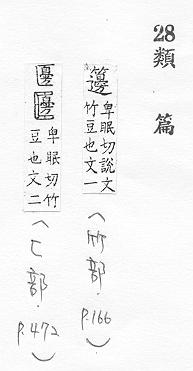 28類 篇
籩
卑眠切說文
竹豆也文一
(竹部. p.166)
卑眠切竹
豆也文二
(匚部. p.472)